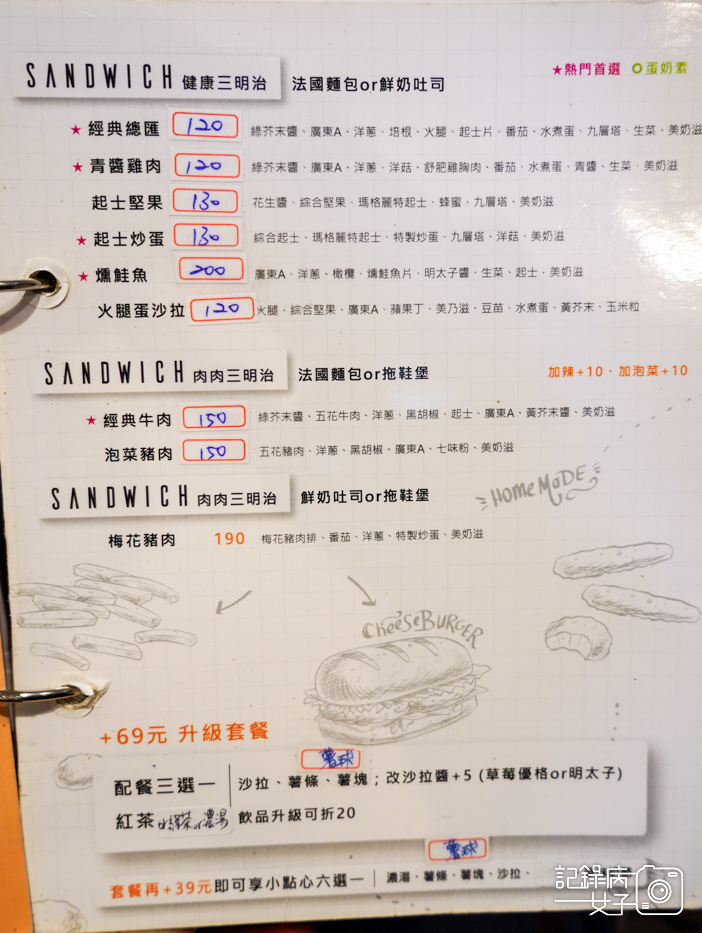 SANDWICH 健康三明治 法國麵包or鮮奶吐司 ★熱門首選 O蛋奶素
★經典總匯 120 綠芥末醬、廣東A、洋蔥、培根、火腿、起士片、番茄、水煮蛋、九層塔、生菜、美奶滋
★青醬雞肉 120 綠芥末醬、廣東A、洋蔥、洋菇、舒肥雞胸肉、番茄、水煮蛋、青醬、生菜、美奶滋
起士堅果 130 花生醬、綜合堅果、瑪格麗特起士、蜂蜜、九層塔、美奶滋
★起士炒蛋 130 綜合起士、瑪格麗特起士、特製炒蛋、九層塔、洋菇、美奶滋
★燻鮭魚 200 廣東A、洋蔥、橄欖、燻鮭魚片、明太子醬、生菜、起士、美奶滋
火腿蛋沙拉 120 火腿、綜合堅果、廣東A、蘋果丁、美乃滋、豆苗、水煮蛋、黃芥末、玉米粒
SANDWICH 肉肉三明治 法國麵包or拖鞋堡 加辣+10、加泡菜+10
★經典牛肉 150 綠芥末醬、五花牛肉、洋蔥、黑胡椒、起士、廣東A、黃芥末醬、美奶滋
泡菜豬肉 150 五花豬肉、洋蔥、黑胡椒、廣東A、七味粉、美奶滋
SANDWICH 肉肉三明治 鮮奶吐司or拖鞋堡
HOMe MaDE
梅花豬肉 190 梅花豬肉排、番茄、洋蔥、特製炒蛋、美奶滋
CheeSeBURGER
+69元 升級套餐
薯球
配餐三選一 沙拉、薯條、薯塊；改沙拉醬+5 (草莓優格or明太子)
紅茶 or綠茶 or濃湯 飲品升級可折20
薯球
套餐再+39元即可享小點心六選一 濃湯、薯條、薯塊、沙拉、
記錄病女子